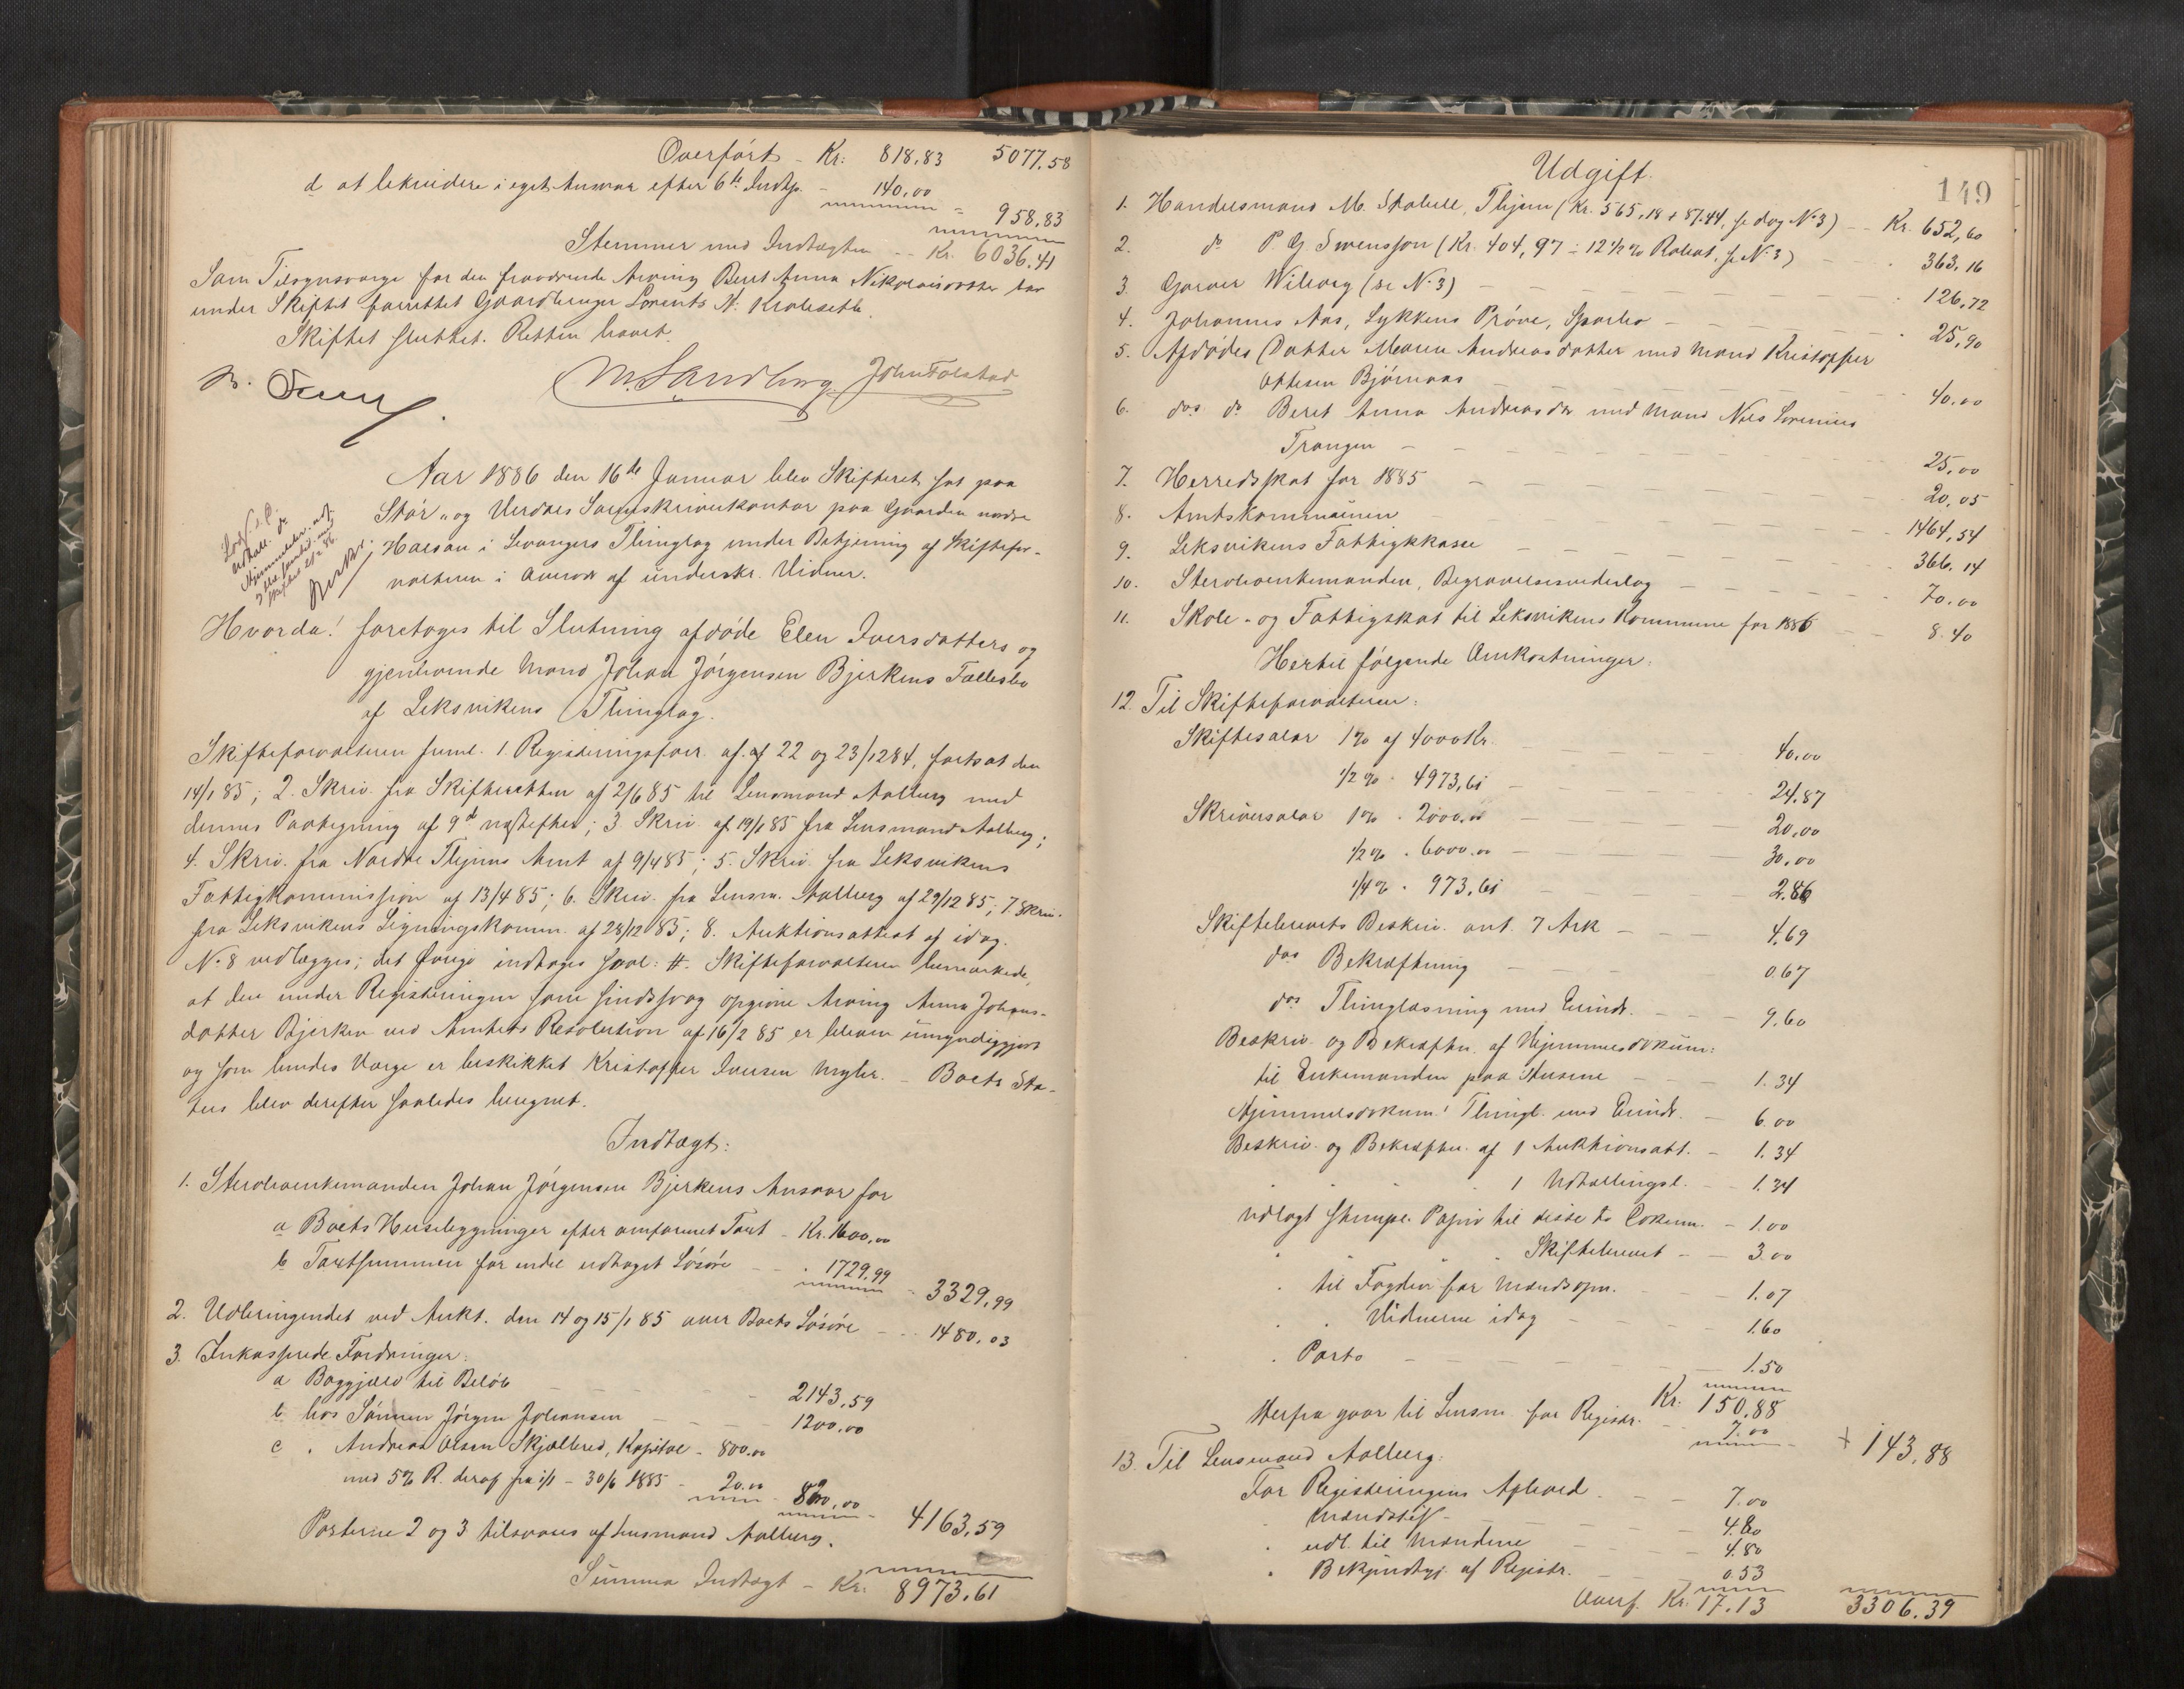 Overført - Kr: 818,83 5077,58
d at likvidere i eget Ansvar efter 6te Indtgt. - 140,00
= 958,83
Stemmer med Indtægten - - Kr. 6036,41
Som Tilsynsværge for den fraværende Arving Beret Anna Nikolaisdatter har
under Skiftet forrettet Gaardbruger Lorents N. Kroksæth.
Skiftet sluttet. Retten hævet.
M. Sandberg. John Folstad
Aar 1886 den 16de Januar blev Skifteret sat paa
Stør- og Verdals Sorenskriverkontor paa Gaarden nordre
Halsan i Levangers Thinglag under Betjening af Skiftefor-
valteren i Overvær af underskr. Vidner.
Hvorda! foretoges til Slutning afdøde Elen Iversdatters og
gjenlevende Mand Johan Jørgensen Bjerkens Fællesbo
af Leksvikens Thinglag.
Skifteforvalteren freml. 1. Registeringsforr. af 22 og 23/12 84, fortsat den
14/1 85; 2. Skriv. fra Skifteretten af 2/6 85 til Lensmand Aalberg med
dennes Paategning af 9d næstefter; 3. Skriv. af 19/1 85 fra Lensmand Aalberg;
4. Skriv. fra Nordre Thjems Amt af 9/4 85; 5. Skriv. fra Leksvikens
Fattigkommission af 13/4 85; 6. Skriv. fra Lensm. Aalberg af 29/12 85; 7. Skriv.
fra Leksvikens Ligningskomm. af 28/12 85; 8. Auktionsattest af idag.
No 8 vedlægges; det Øvrige indtages saal: #. Skifteforvalteren bemærkede,
at den under Registeringen som sindssvag opgivne Arving Anna Johans-
datter Bjerken ved Amtets Resolution af 16/2 85 er bleven umyndiggjort
og som hendes Værge er beskikket Kristoffer Iversen Myhr. - Boets Sta-
tus blev derefter saaledes beregnet.
Indtægt:
1. Stervboenkemanden Johan Jørgensen Bjerkens Ansvar for
a Boets Husebygninger efter omforenet Taxt - Kr. 1600,00
b Taxtsummen for endel udtaget Løsøre - - 1729,99
- 3329,99
2. Udbringendet ved Aukt. den 14 og 15/1 85 over Boets Løsøre - - 1480,03
3. Inkasserede Fordringer:
a Boggjæld til Beløb - 2143,59
b hos Sønnen Jørgen Johansen - 1200,00
c " Andreas Olsen Skjælbred, Kapital - 800,00
med 5% R. deraf fra 1/1 - 30/6 1885 - 20.00 820,00
4163,59
Posterne 2 og 3 tilsvares af Lensmand Aalberg.
Summa Indtægt - Kr: 8973,61
149
Udgift.
1. Handelsmand M. Stabell, Thjem (Kr. 565,18 + 87,44, se dog No 3) - - Kr. 652,60
2. do P. G. Svensson (Kr. 404,97 ÷ 12 1/2 % Rabat, se No 3) - 363,16
3. Garver Wiborg (se No 3) - 126,72
4. Johannes Aas, Lykkens Prøve, Sparbo - 25,90
5. Afdødes Datter Maren Andreasdatter med Mand Kristoffer
Ottesen Bjørnaas - 40.00
6. das do Beret Anna Andreasdr med Mand Nils Lorenius
Trangen - 25,00
7. Herredsskat for 1885 - 20,05
8. Amtskommunen - 1464,54
9. Leksvikens Fattigkasse - 366,14
10. Stervboenkemanden, Begravelsesvederlag - 70.00
11. Skole- og Fattigskat til Leksvikens Kommune for 1886 - 8.40
Hertil følgende Omkostninger:
12. Til Skifteforvalteren:
Skiftesalær 1% af 4000 Kr. - 40.00
1/2 % " 4973,61 - 24.87
Skriversalær 1% " 2000,00 - 20,00
1/2 % " 6000.00 - 30,00
1/4 % " 973,61 - 2.86
Skiftebrevets Beskriv. ant. 7 Ark - 4,69
das Bekræftning - 0.67
das Thinglæsning med Erindr. - 9.60
Beskriv. og Bekræftn. af Hjemmelsdokum:
til Enkemanden paa Husene - 1.34
Hjemmelsdokum: Thingl. med Erindr. - 6.00
Beskriv. og Bekræftn. af 1 Auktionsatt. - 1.34
" " 1 Udtællingsl. - 1.34
udlagt stempl. Papir til disse to Dokum. - 1.00
" " " Skiftebrevet - 3.00
" til Fogden for Mændsopn. - 1.07
" " Vidnerne idag - 1.60
" Porto - 1.50
Kr. 150,88
Herfra gaar til Lensm. for Registr. - 7.00
143,88
13. Til Lensmand Aalberg:
For Registeringens Afhold - 7.00
" Mændstils. - 4.80
" udl. til Mændene - 4.80
" Bekjendtgj. af Registr. - 0.53
Overf. Kr. 17.13 3306.39